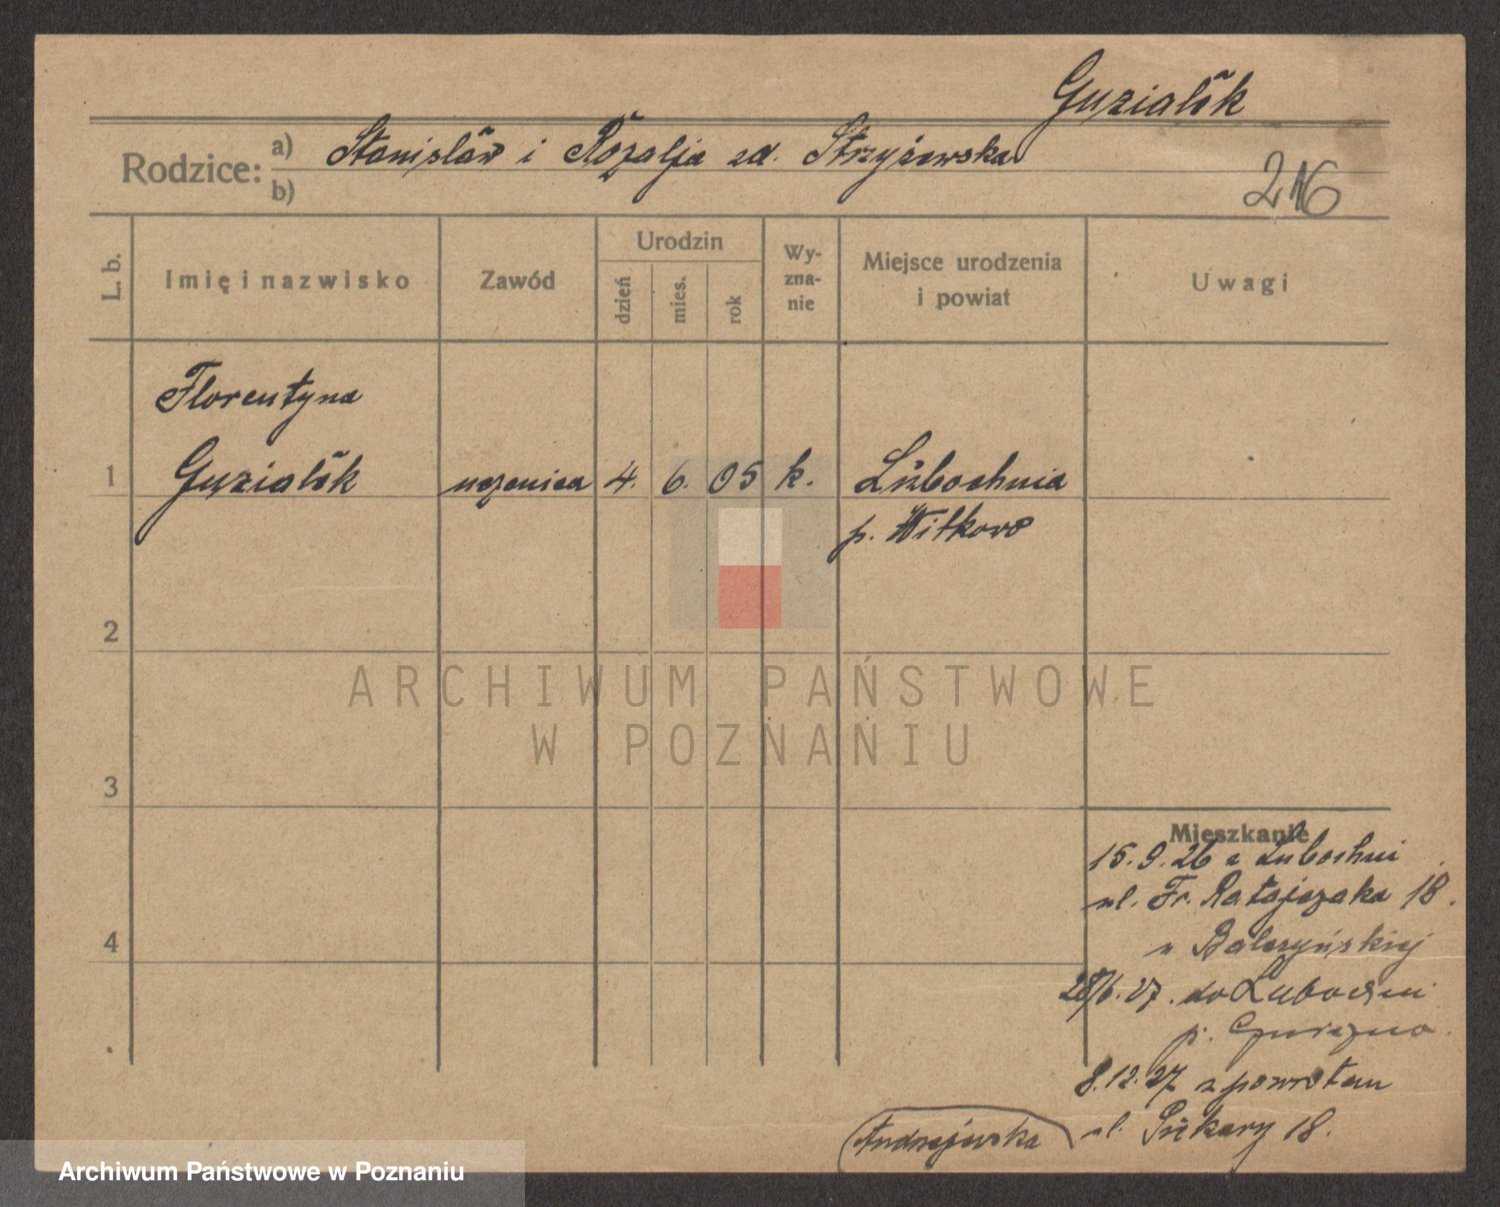 Guziałek
Rodzice: a) Stanisław i Rozalja zd. Strzyżewska
b)
216
L. b.
Imię i nazwisko
Zawód
Urodzin
dzień
mies.
rok
Wy-
zna-
nie
Miejsce urodzenia
i powiat
Uwagi
Florentyna
1 Guziałek uczenica 4. 6. 05 k. Lubochnia
p. Witkowo
2
ARCHIWUM PAŃSTWOWE
W POZNANIU
3
Mieszkanie
15.9.26 z Lubochni
ul. Fr. Ratajczaka 18.
4
u Balczyńskiej
28/6.27. do Lubochni
p. Gniezno
8.12.27 z powrotem
ul. Piekary 18.
Andrzejewska
Archiwum Państwowe w Poznaniu